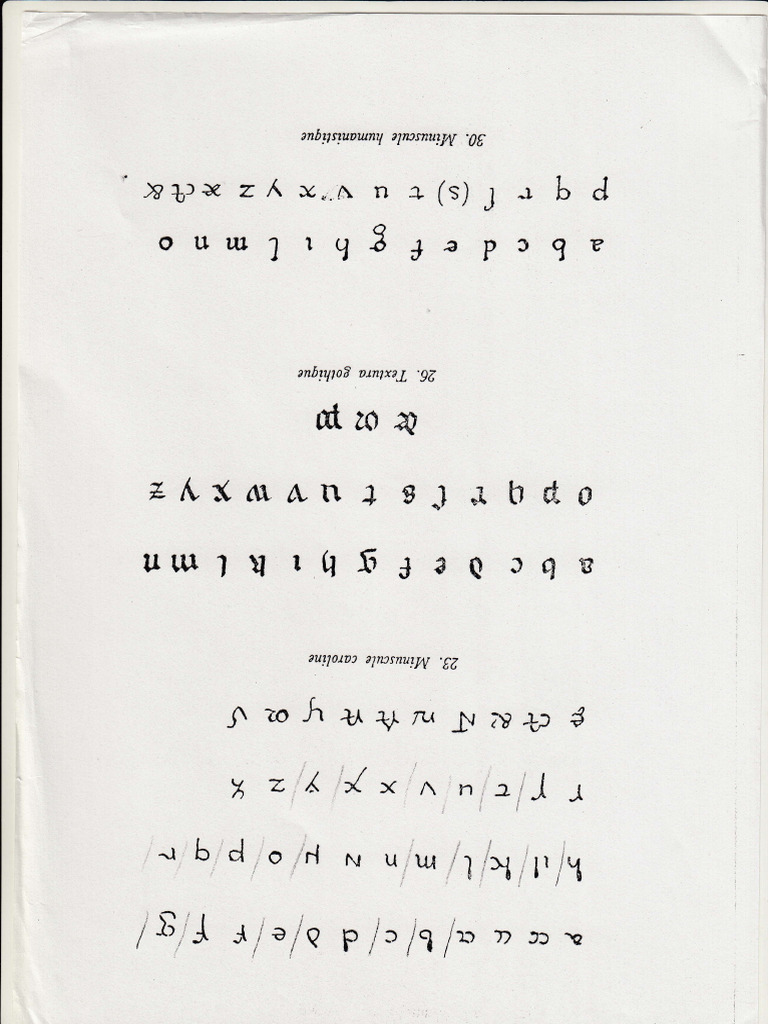 a cc u a / b / c / d ∂ / e / f f / g /
h / i l / k / l / m / n N H / o / p / q / r /
r ſ / t / u / v x x / y / z z
ę ct &
23. Minuscule caroline
a b c d e f g h i k l m n
o p q r ſ s t u v w x y z
26. Textura gothique
a b c d e f g h i l m n o
p q r ſ (s) t u v x y z æ ct &
30. Minuscule humanistique